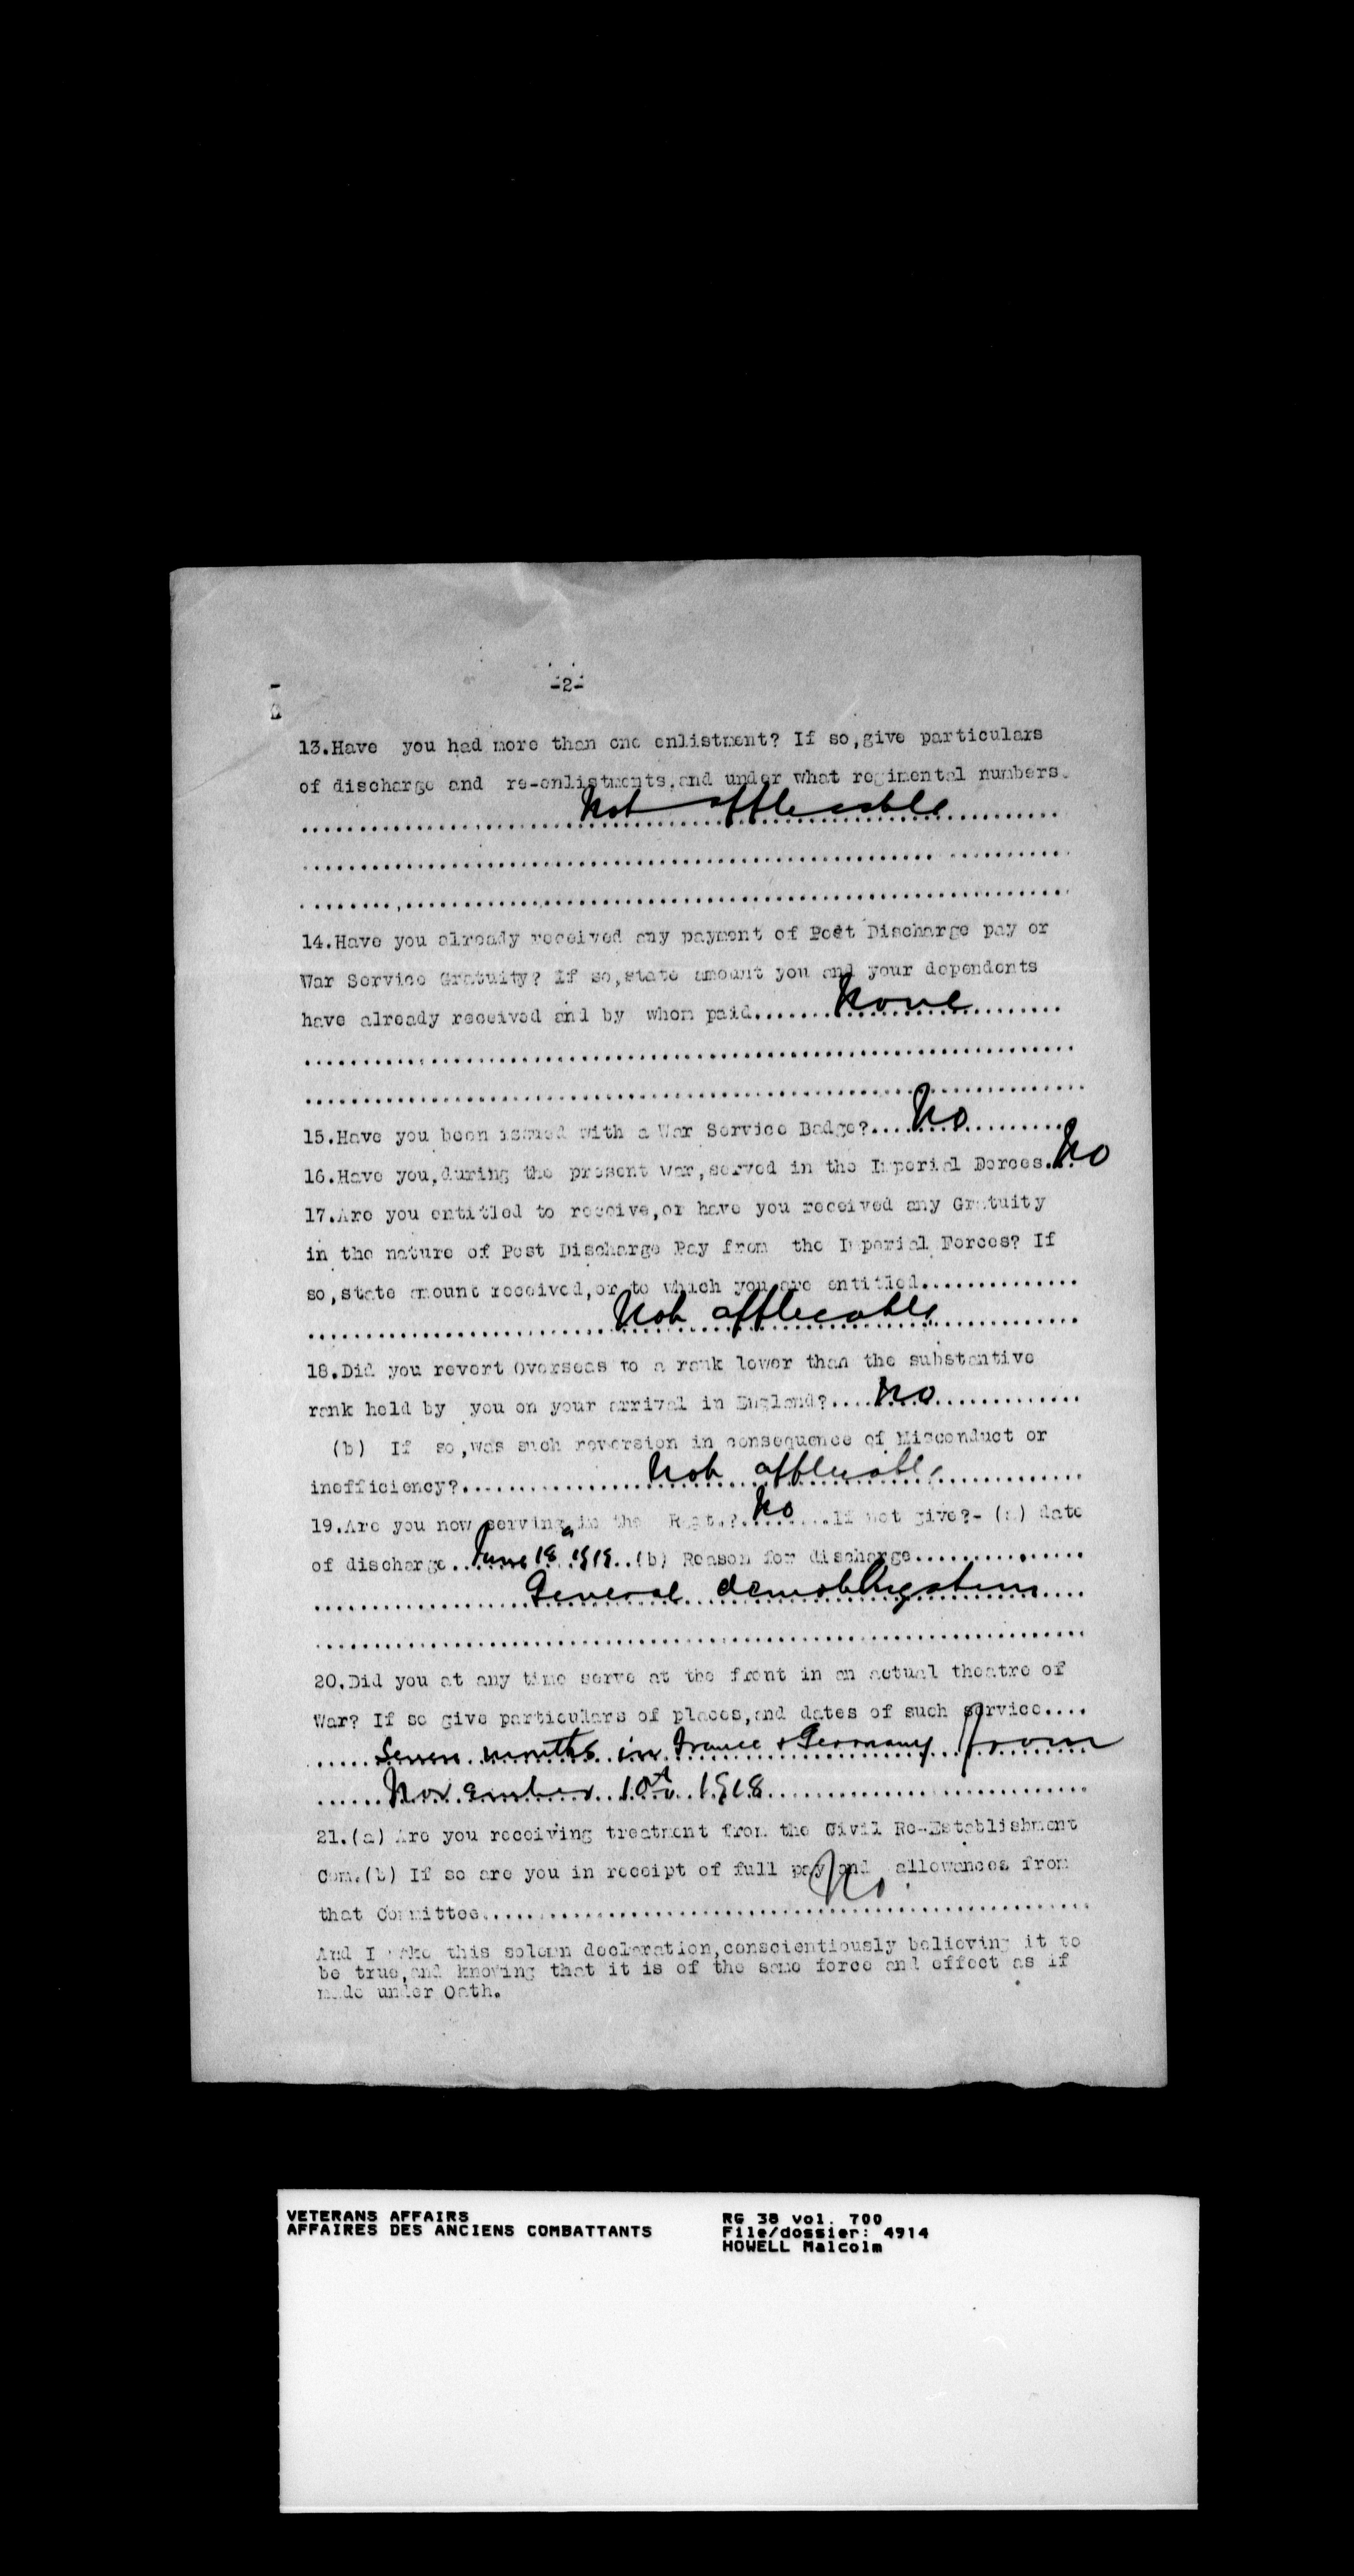 -2-
13.Have you had more than one enlistment? If so,give particulars
of discharge and re-enlistments,and under what regimental numbers.
Not applicable
14.Have you already received any payment of Post Discharge pay or
War Service Gratuity? If so,state amount you and your dependents
have already received and by whom paid....... None
15.Have you been issued with a War Service Badge?.... No
16.Have you,during the present war,served in the Imperial Forces... No
17.Are you entitled to receive,or have you received any Gratuity
in the nature of Post Discharge Pay from the Imperial Forces? If
so,state amount received,or to which you are entitled..............
Not applicable
18.Did you revert Overseas to a rank lower than the substantive
rank held by you on your arrival in England?.... No
(b) If so,was such reversion in consequence of Misconduct or
inefficiency?.................. Not applicable
19.Are you now serving in the Regt.?. No ......If not give?- (a) date
of discharge.. June 1919..(b) Reason for discharge...............
General demobilization....
20.Did you at any time serve at the front in an actual theatre of
War? If so give particulars of places,and dates of such service....
..... Seven months in France & Germany from
...... November 10th 1918
21.(a) Are you receiving treatment from the Civil Re-Establishment
Com.(b) If so are you in receipt of full pay and allowances from
No
that Committee.....
And I make this solemn declaration,conscientiously believing it to
be true,and knowing that it is of the same force and effect as if
made under Oath.
VETERANS AFFAIRS
AFFAIRES DES ANCIENS COMBATTANTS
RG 38 vol. 700
File/dossier: 4914
HOWELL Malcolm